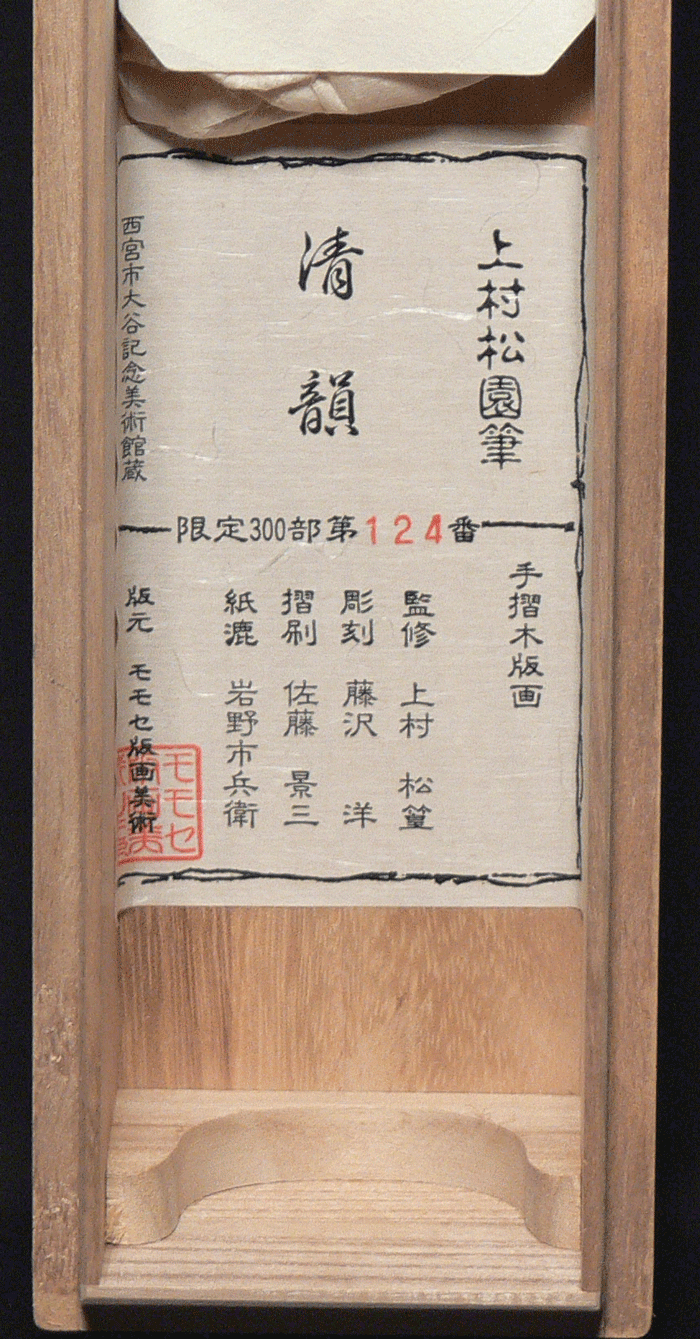 上村松園筆
清韻
西宮市大谷記念美術館蔵
限定300部第124番
手摺木版画
監修 上村 松篁
彫刻 藤沢 洋
摺刷 佐藤 景三
紙漉 岩野市兵衛
版元 モモセ版画美術
モモセ